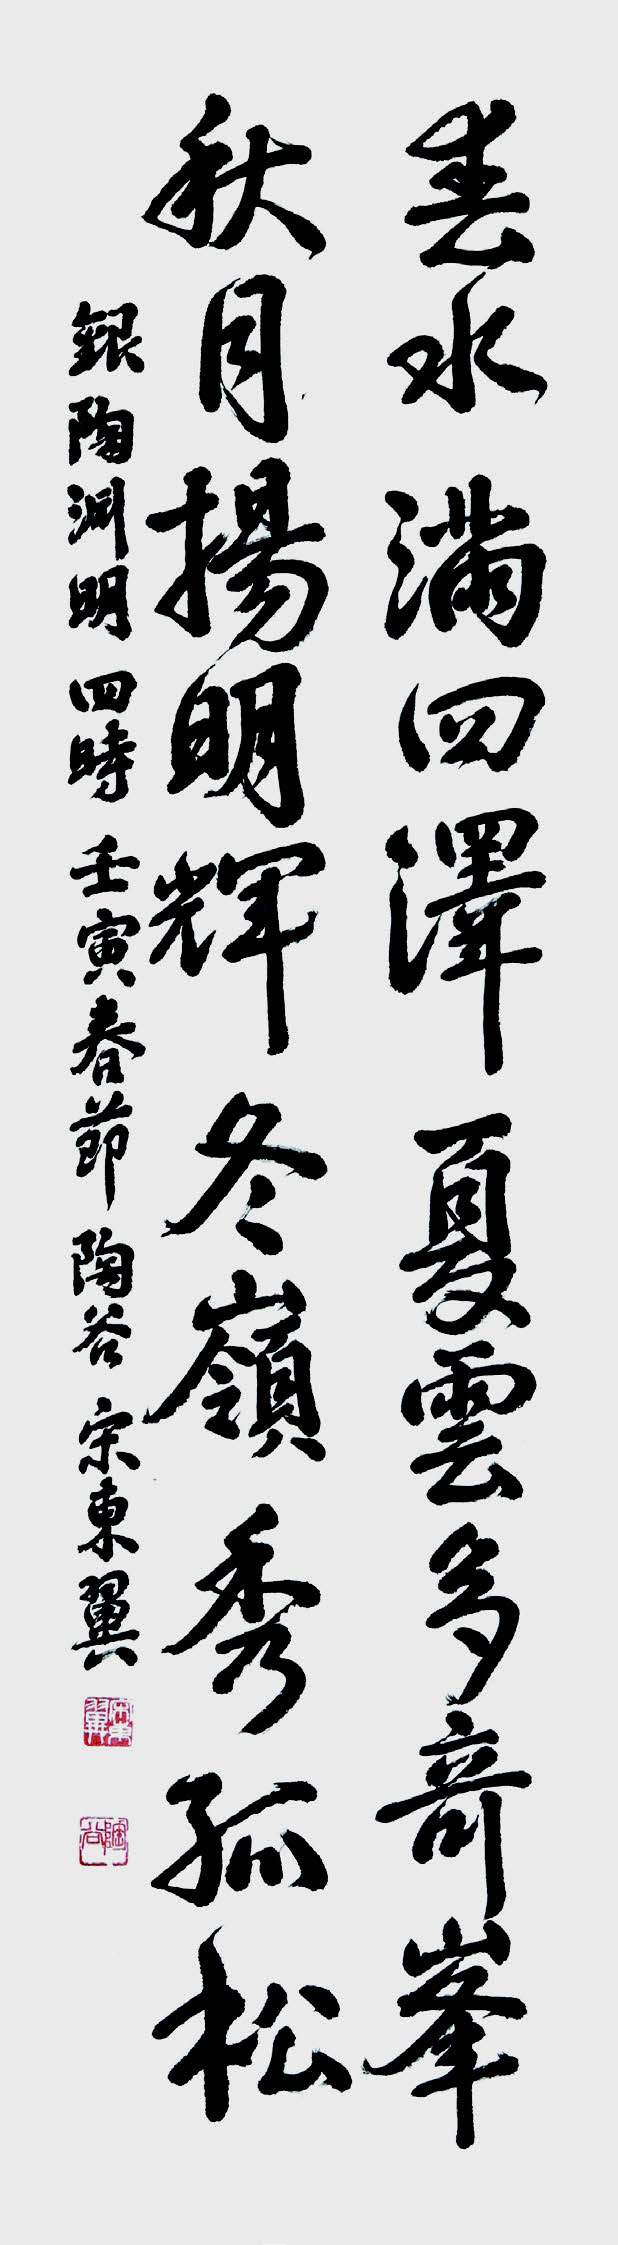 春水滿四澤夏雲多奇峯
秋月揚明輝冬嶺秀孤松
銀陶淵明四時壬寅春節陶谷宋東翼
陶谷